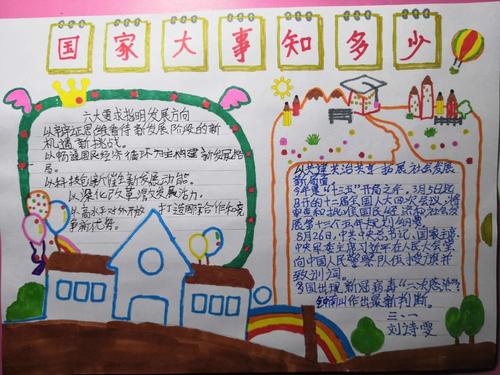 国家大事知多少
六大要求指明发展方向
以辩证思维看待新发展阶段的新
机遇新挑战。
以畅通国民经济循环为主构建新发展格
局。
以科技创新催生新发展动能。
以深化改革激发发展活力。
以高水平对外开放打造国际合作和竞
争新优势。
以共建共治共享拓展社会发展
新局面。
今年是"十三五"开局之年。3月5日起
召开的十二届全国人大四次会议,将
审查和批准国民经济和社会发
展第十三个五年规划纲要
8月26日,中共中央总书记、国家主席、
中央军委主席习近平在人民大会堂
向中国人民警察队伍授旗并
致训词。
多国出现新冠病毒"二次感染",
钟南山作出最新判断。
三、一
刘诗雯